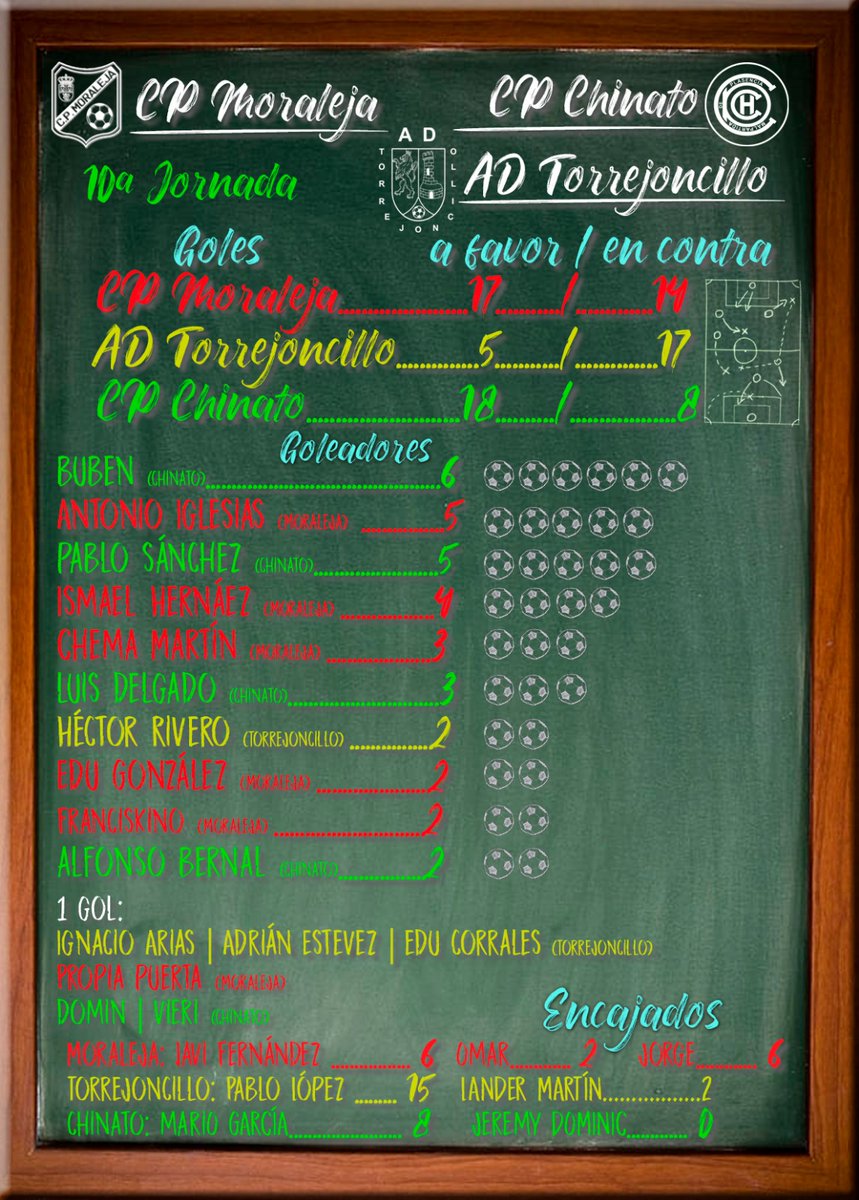 C.P. MORALEJA
CP Moraleja
CP Chinato
PLASENCIA
CHC
10ª Jornada
AD
TORREJONCILLO
AD Torrejoncillo
Goles a favor / en contra
CP Moraleja..............17......./.........14
AD Torrejoncillo...........5......./...........17
CP Chinato.................18......./.............8
Goleadores
BUBEN (CHINATO)..................................6
ANTONIO IGLESIAS (MORALEJA) ..............5
PABLO SÁNCHEZ (CHINATO)..................5
ISMAEL HERNÁEZ (MORALEJA) .............4
CHEMA MARTÍN (MORALEJA) ...............3
LUIS DELGADO (CHINATO)......................3
HÉCTOR RIVERO (TORREJONCILLO) ...........2
EDU GONZÁLEZ (MORALEJA) ................2
FRANCISKINO (MORALEJA) .....................2
ALFONSO BERNAL (CHINATO)............2
1 GOL:
IGNACIO ARIAS | ADRIÁN ESTEVEZ | EDU CORRALES (TORREJONCILLO)
PROPIA PUERTA (MORALEJA)
DOMIN | VIERI (CHINATO)
Encajados
MORALEJA: JAVI FERNÁNDEZ ............. 6 OMAR.......... 2 JORGE.......... 6
TORREJONCILLO: PABLO lÓPEZ ....... 15 lANDER MARTÍN.................2
CHINATO: MARIO GARCÍA.................. 8 JEREMY DOMINIC.......... 0